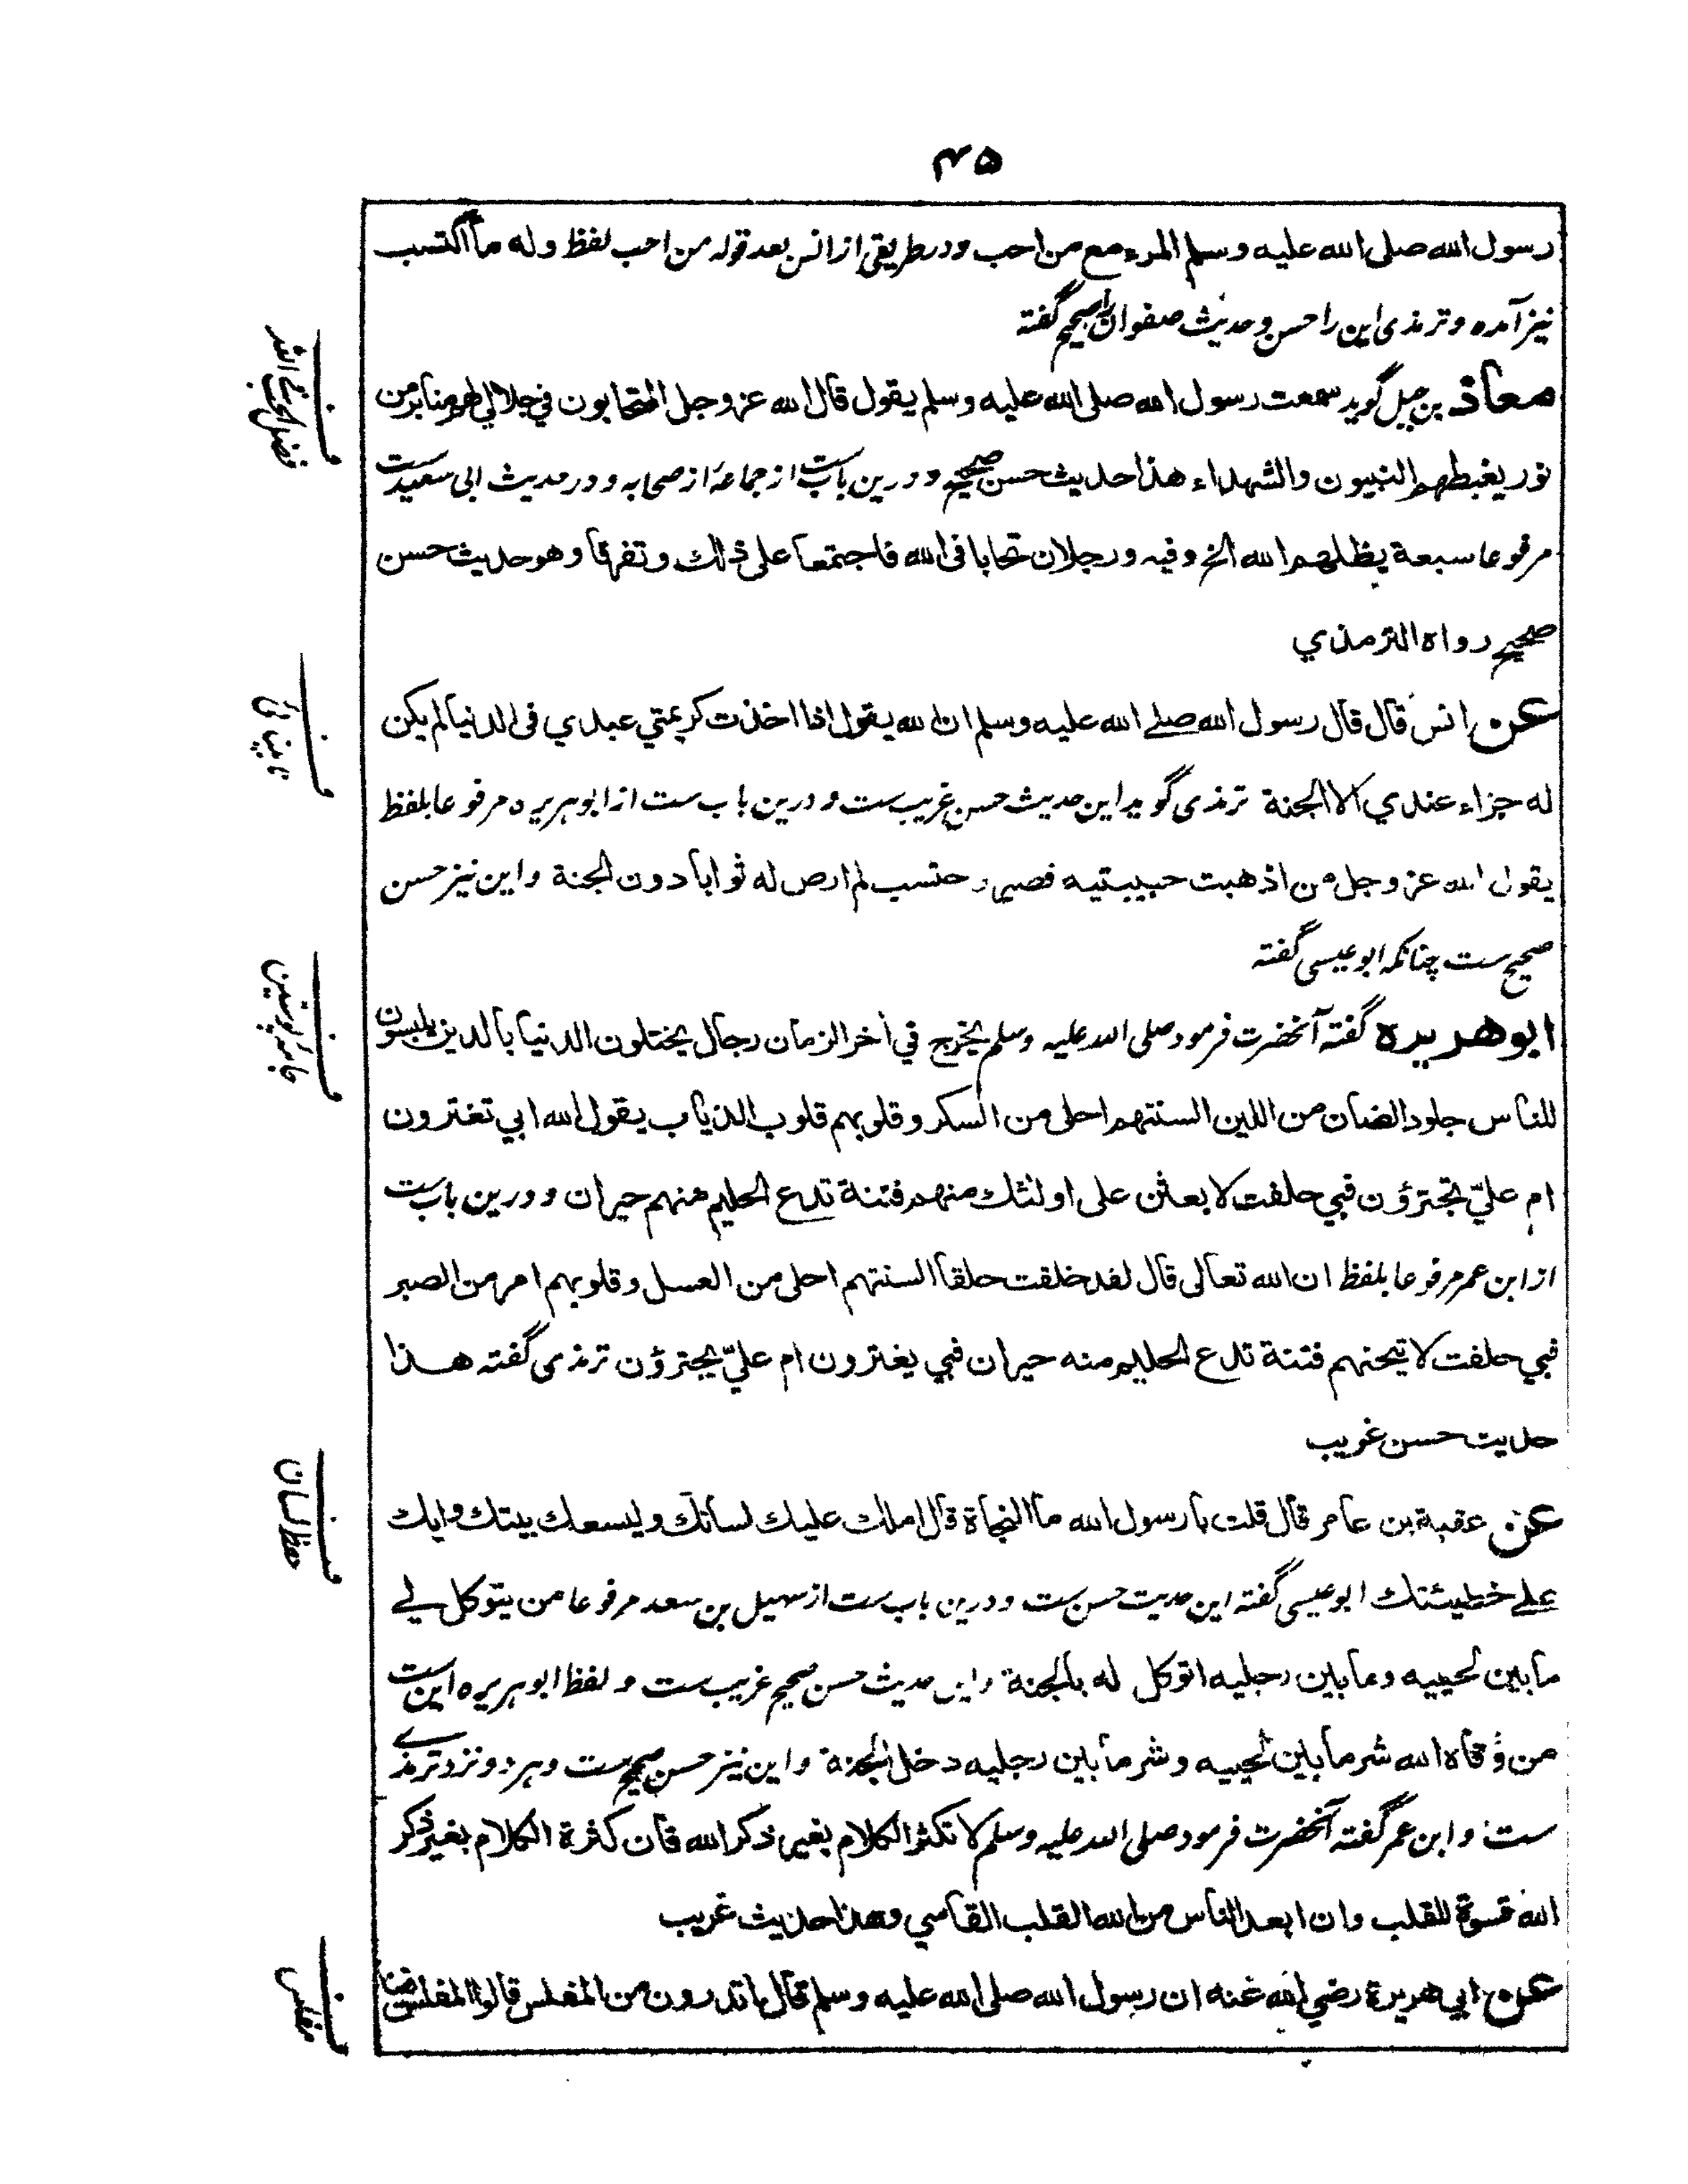 ۴۵
رسول الله صلى الله عليه وسلم المرء مع من احب ودر طريقى از انس بعد قوله من احب لفظ وله ما اكتسب
نیز آمده و ترمذی این را حسن و حدیث صفوان را صحیح گفته
معاذ بن جبل گوید سمعت رسول الله صلى الله عليه وسلم يقول قال الله عز وجل المتحابون في جلالي لهم منابر من
نور يغبطهم النبيون والشهداء هذا حديث حسن صحيح ودرین باب ست از جماعهٔ از صحابه و در حدیث ابی سعید ست
مرفوعا سبعة يظلهم الله الخ وفيه ورجلان تحابا فى الله فاجتمعا على ذلك وتفرقا وهو حديث حسن
صحيح رواه الترمذي
عن انس قال قال رسول الله صلے الله عليه وسلم ان الله يقول اذا اخذت كريمتي عبدي فى الدنيا لم يكن
له جزاء عندي الا الجنة ترمذی گوید این حدیث حسن غریب ست و درین باب ست از ابو هریره مرفوعا بلفظ
يقول الله عز وجل من اذهبت حبيبتيه فصبر واحتسب لم ارض له ثوابا دون الجنة واین نیز حسن
صحیح ست چنانکه ابو عیسی گفته
ابو هريره گفته آنحضرت فرمود صلی الله علیه وسلم يخرج في اخر الزمان رجال يختلون الدنيا بالدين يلبسون
للناس جلود الضان من اللين السنتهم احلى من السكر وقلوبهم قلوب الذياب يقول الله ابي تغترون
ام عليّ تجترؤن فبي حلفت لابعثن على اولئك منهم فتنة تدع الحليم منهم حيران و درین باب ست
از ابن عمر مرفوعا بلفظ ان الله تعالى قال لقد خلقت خلقا السنتهم احلى من العسل وقلوبهم امر من الصبر
فبي حلفت لاتيحنهم فتنة تدع الحليم منه حيران فبي يغترون ام عليّ يجترؤن ترمذی گفته هذا
حديث حسن غريب
عن عقبة بن عامر قال قلت يا رسول الله ما النجاة قال املك عليك لسانك وليسعك بيتك وابك
علے خطيئتك ابو عیسی گفته این حدیث حسن ست و درین باب ست از سهیل بن سعد مرفوعا من يتوكل لے
ما بين لحييه وما بين رجليه اتوكل له بالجنة واین حدیث حسن صحیح غریب ست و لفظ ابو هریره این ست
من وقاه الله شر ما بين لحييه وشر ما بين رجليه دخل الجنة واین نیز حسن صحیح ست و هر دو نزد ترمذے
ست و ابن عمر گفته آنحضرت فرمود صلی الله علیه وسلم لا تكثر الكلام بغير ذكر الله فان كثرة الكلام بغير ذكر
الله قسوة للقلب وان ابعد الناس من الله القلب القاسي وهذا حديث غريب
عن ابي هريرة رضي الله عنه ان رسول الله صلى الله عليه وسلم قال اتدرون من المفلس قالوا المفلس فينا
ف
نابینائی
ف
جامهٔ پوستین
ف
حفظ لسان
ف
مفلس
ف